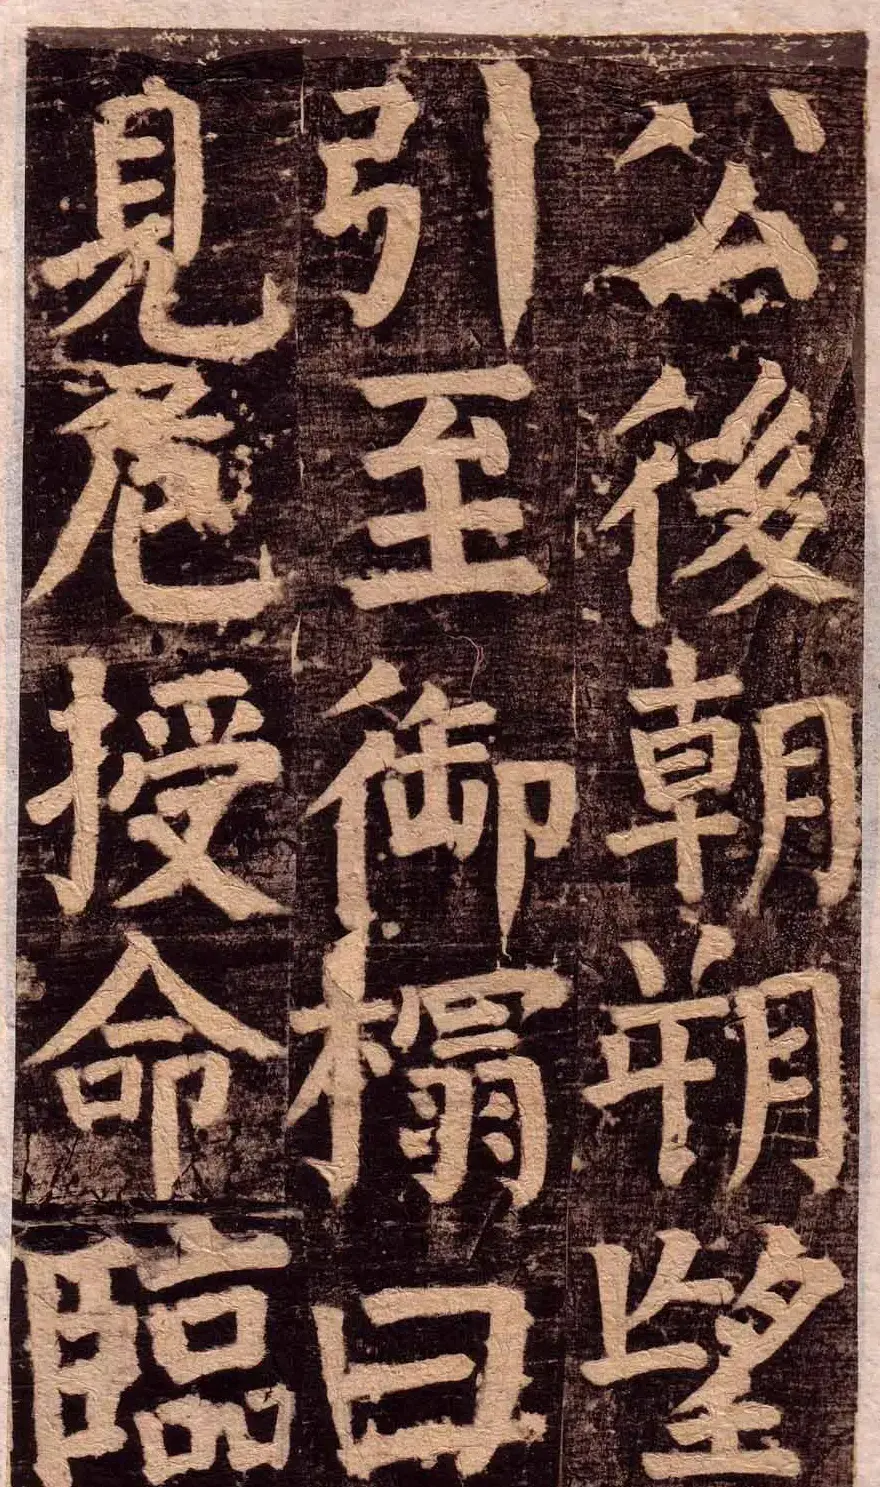 公後朝朔望
引至御榻曰
見危授命臨